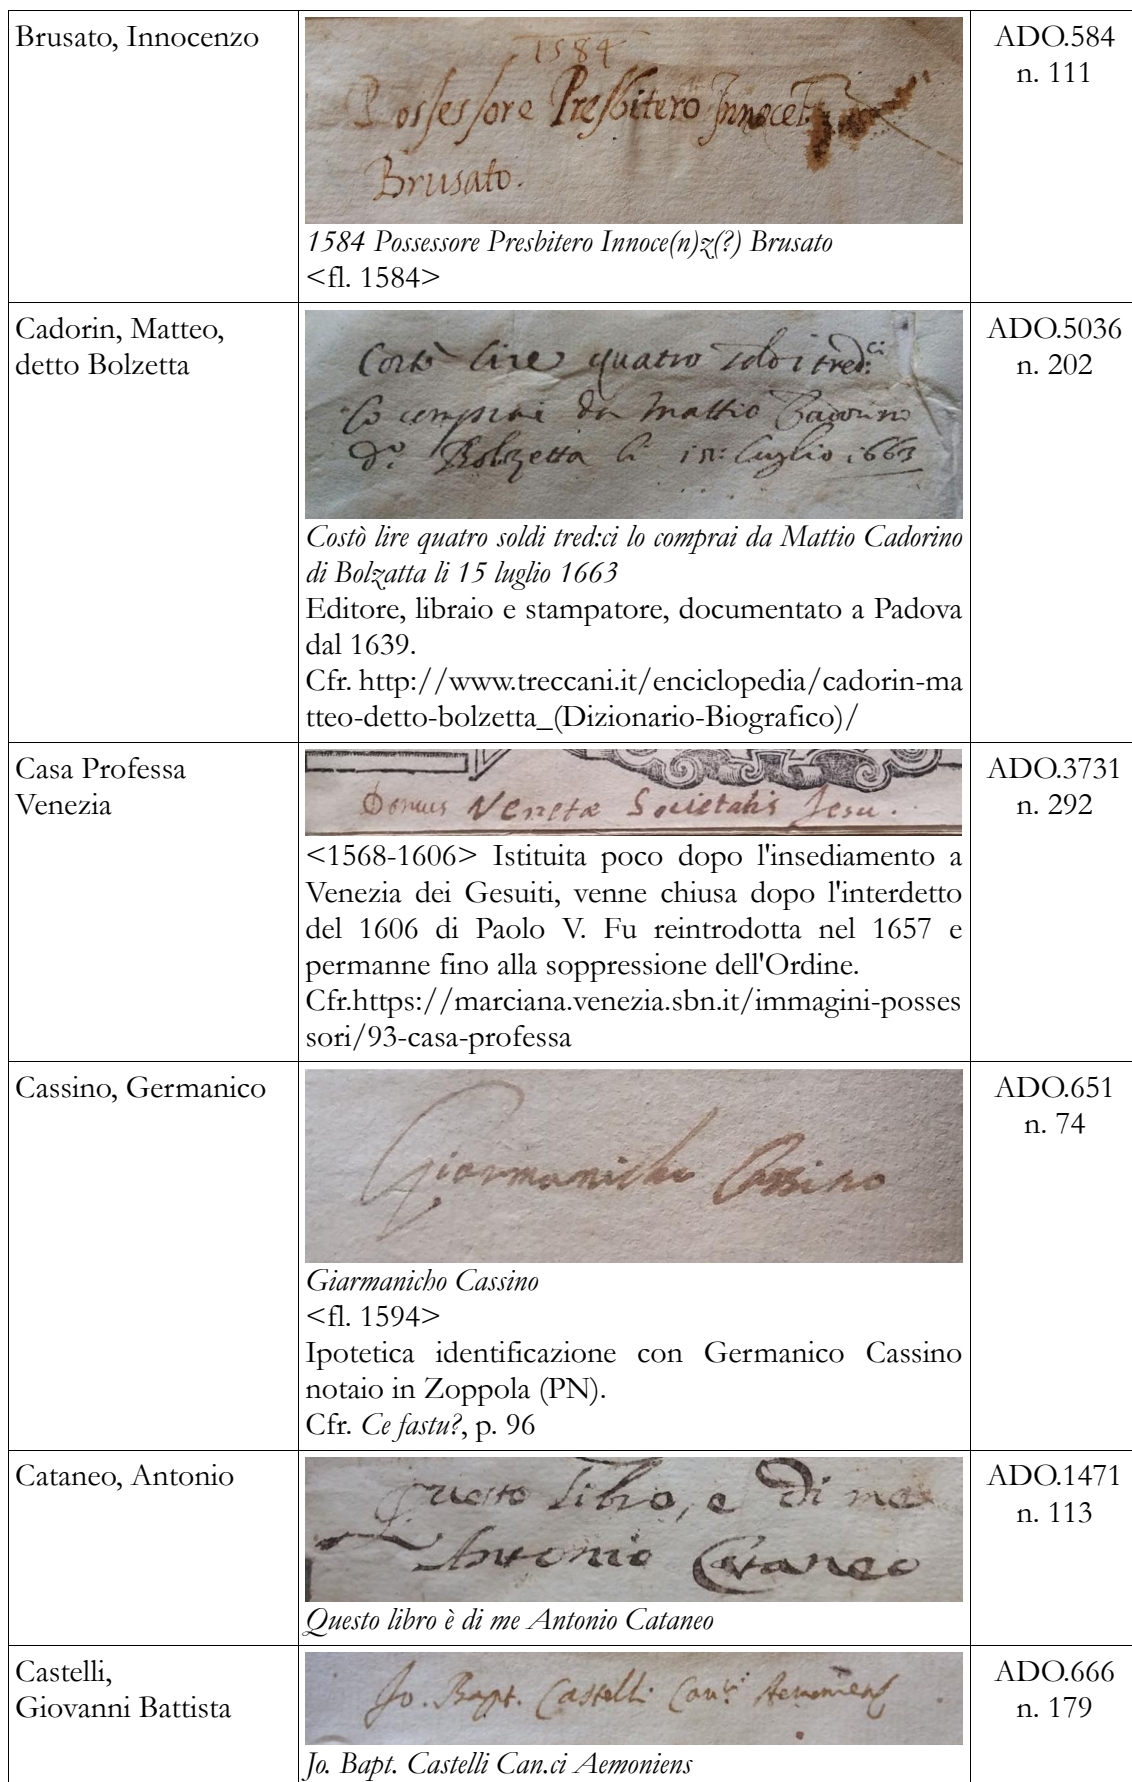 Brusato, Innocenzo
1584
Possessore Presbitero Innocet
Brusato.
1584 Possessore Presbitero Innoce(n)z(?) Brusato
<fl. 1584>
ADO.584
n. 111
Cadorin, Matteo,
detto Bolzetta
Costò lire quatro soldi tred:ci
lo comprai da Mattio Cadorino
d.º Bolzetta li 15: luglio 1663
Costò lire quatro soldi tred:ci lo comprai da Mattio Cadorino
di Bolzatta li 15 luglio 1663
Editore, libraio e stampatore, documentato a Padova
dal 1639.
Cfr. http://www.treccani.it/enciclopedia/cadorin-ma
tteo-detto-bolzetta_(Dizionario-Biografico)/
ADO.5036
n. 202
Casa Professa
Venezia
Domus Venetæ Societatis Jesu.
<1568-1606> Istituita poco dopo l'insediamento a
Venezia dei Gesuiti, venne chiusa dopo l'interdetto
del 1606 di Paolo V. Fu reintrodotta nel 1657 e
permanne fino alla soppressione dell'Ordine.
Cfr.https://marciana.venezia.sbn.it/immagini-posses
sori/93-casa-professa
ADO.3731
n. 292
Cassino, Germanico
Giarmanicho Cassino
Giarmanicho Cassino
<fl. 1594>
Ipotetica identificazione con Germanico Cassino
notaio in Zoppola (PN).
Cfr. Ce fastu?, p. 96
ADO.651
n. 74
Cataneo, Antonio
Questo Libro, e di me
Antonio Cataneo
Questo libro è di me Antonio Cataneo
ADO.1471
n. 113
Castelli,
Giovanni Battista
Jo. Bapt. Castelli Can.ci Aemoniens
Jo. Bapt. Castelli Can.ci Aemoniens
ADO.666
n. 179